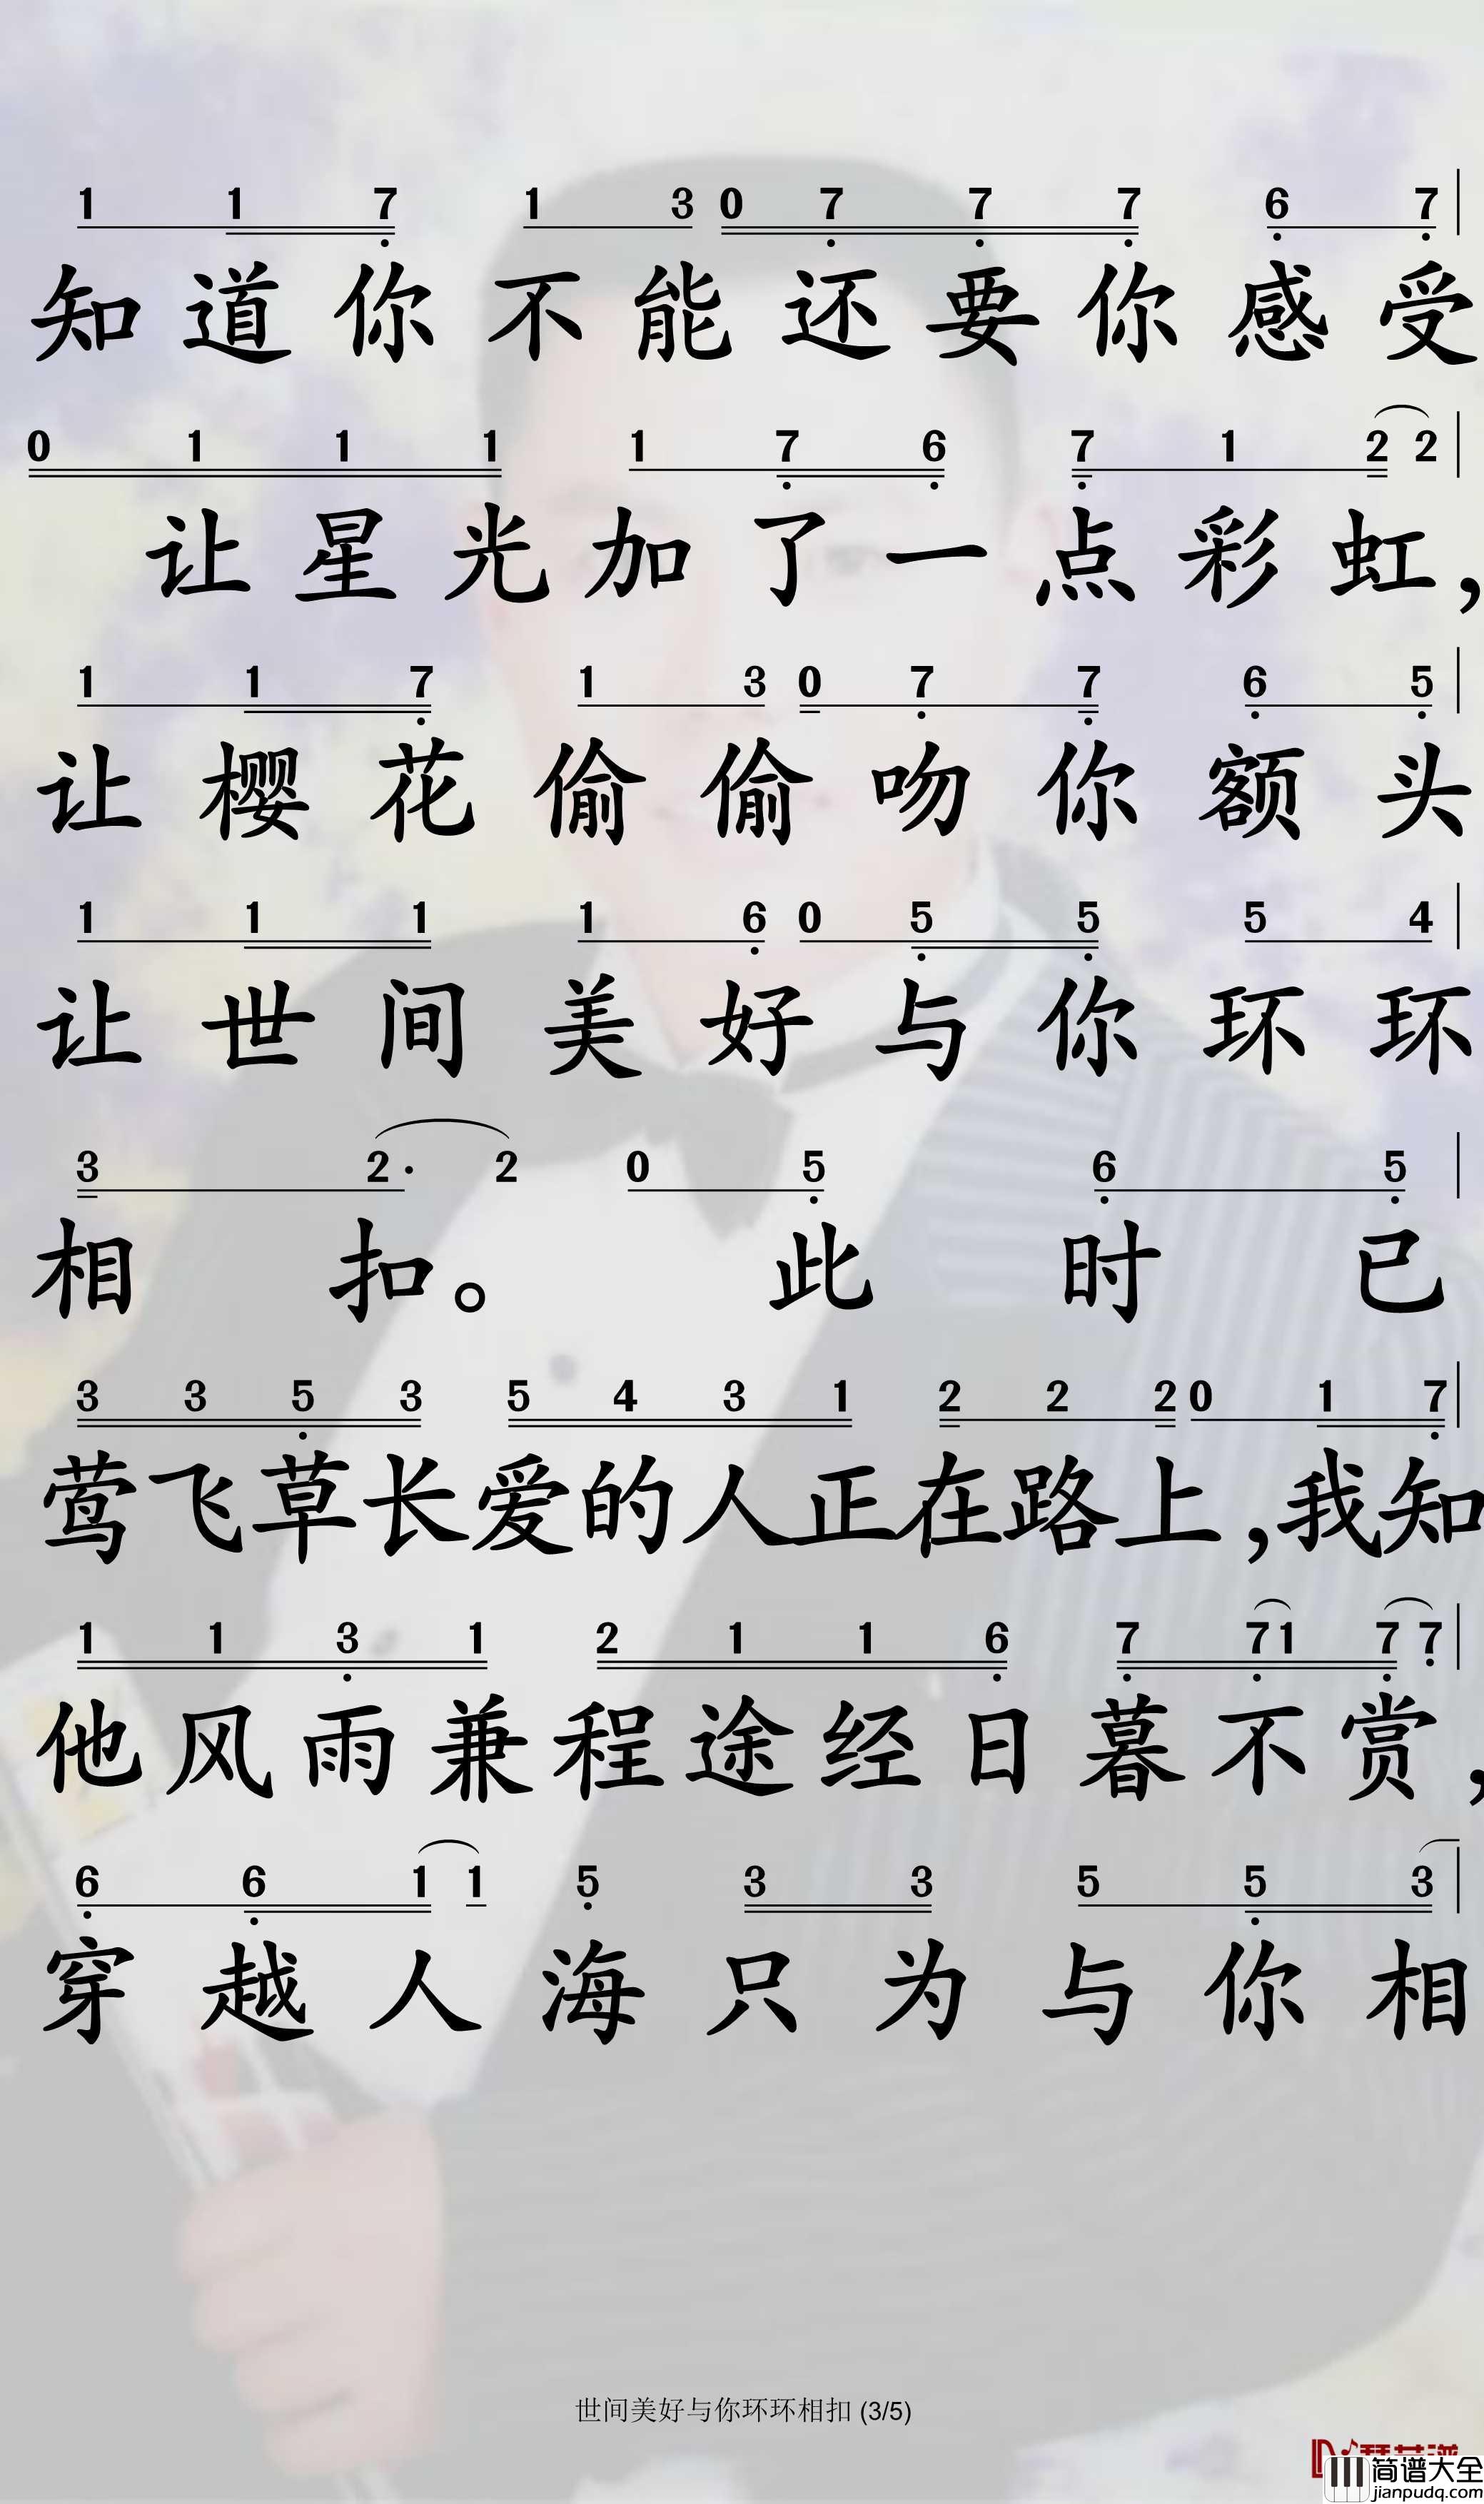 1 1 7 1 3 0 7 7 7 6 7
知道你不能还要你感受
0 1 1 1 1 7 6 7 1 2 2
让星光加了一点彩虹，
1 1 7 1 3 0 7 7 6 5
让樱花偷偷吻你额头
1 1 1 1 6 0 5 5 5 4
让世间美好与你环环
3 2· 2 0 5 6 5
相扣。此时已
3 3 5 3 5 4 3 1 2 2 2 0 1 7
莺飞草长爱的人正在路上，我知
1 1 3 1 2 1 1 6 7 7 1 7 7
他风雨兼程途经日暮不赏，
6 6 1 1 5 3 3 5 5 3
穿越人海只为与你相
世间美好与你环环相扣 (3/5)
简谱大全
jianpudq.com